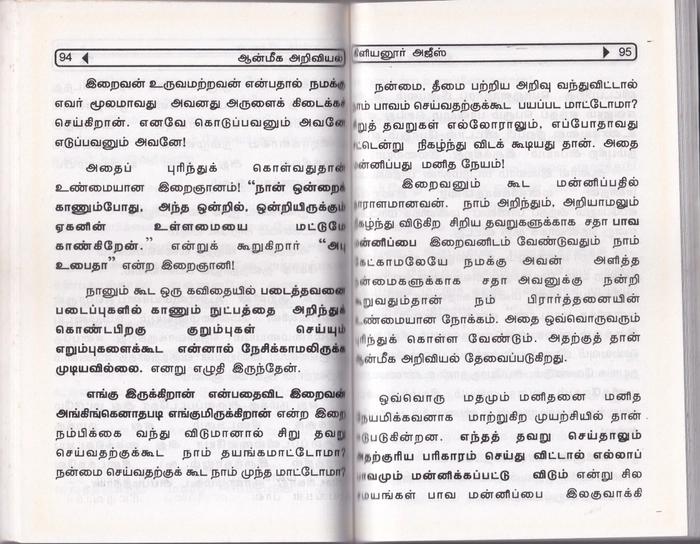 94 ஆன்மீக அறிவியல்
இறைவன் உருவமற்றவன் என்பதால் நமக்கு
எவர் மூலமாவது அவனது அருளைக் கிடைக்கச்
செய்கிறான். எனவே கொடுப்பவனும் அவனே
எடுப்பவனும் அவனே!
அதைப் புரிந்துக் கொள்வதுதான்
உண்மையான இறைஞானம்! "நான் ஒன்றைக்
காணும்போது, அந்த ஒன்றில், ஒன்றியிருக்கும்
ஏகனின் உள்ளமையை மட்டுமே
காண்கிறேன்." என்றுக் கூறுகிறார் "அபு
உபைதா" என்ற இறைஞானி!
நானும் கூட ஒரு கவிதையில் படைத்தவனை
படைப்புகளில் காணும் நுட்பத்தை அறிந்துக்
கொண்டபிறகு குறும்புகள் செய்யும்
எறும்புகளைக்கூட என்னால் நேசிக்காமலிருக்க
முடியவில்லை. எனறு எழுதி இருந்தேன்.
எங்கு இருக்கிறான் என்பதைவிட இறைவன்
அங்கிங்கெனாதபடி எங்குமிருக்கிறான் என்ற இறை
நம்பிக்கை வந்து விடுமானால் சிறு தவறு
செய்வதற்குக்கூட நாம் தயங்கமாட்டோமா?
நன்மை செய்வதற்குக் கூட நாம் முந்த மாட்டோமா?
கிளியனூர் அஜீஸ் 95
நன்மை, தீமை பற்றிய அறிவு வந்துவிட்டால்
நாம் பாவம் செய்வதற்குக்கூட பயப்பட மாட்டோமா?
சிறுத் தவறுகள் எல்லோராலும், எப்போதாவது
சட்டென்று நிகழ்ந்து விடக் கூடியது தான். அதை
மன்னிப்பது மனித நேயம்!
இறைவனும் கூட மன்னிப்பதில்
தாராளமானவன். நாம் அறிந்தும், அறியாமலும்
நிகழ்ந்து விடுகிற சிறிய தவறுகளுக்காக சதா பாவ
மன்னிப்பை இறைவனிடம் வேண்டுவதும் நாம்
கேட்காமலேயே நமக்கு அவன் அளித்த
நன்மைகளுக்காக சதா அவனுக்கு நன்றி
கூறுவதும்தான் நம் பிரார்த்தனையின்
உண்மையான நோக்கம். அதை ஒவ்வொருவரும்
புரிந்துக் கொள்ள வேண்டும். அதற்குத் தான்
ஆன்மீக அறிவியல் தேவைப்படுகிறது.
ஒவ்வொரு மதமும் மனிதனை மனித
நேயமிக்கவனாக மாற்றுகிற முயற்சியில் தான்
ஈடுபடுகின்றன. எந்தத் தவறு செய்தாலும்
அதற்குரிய பரிகாரம் செய்து விட்டால் எல்லாப்
பாவமும் மன்னிக்கப்பட்டு விடும் என்று சில
சமயங்கள் பாவ மன்னிப்பை இலகுவாக்கி